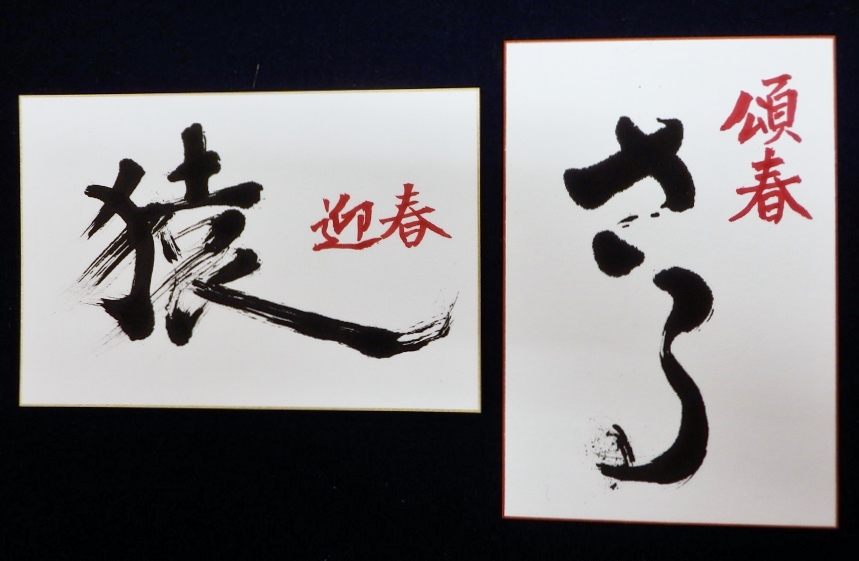 猿
迎春
頌春
さる